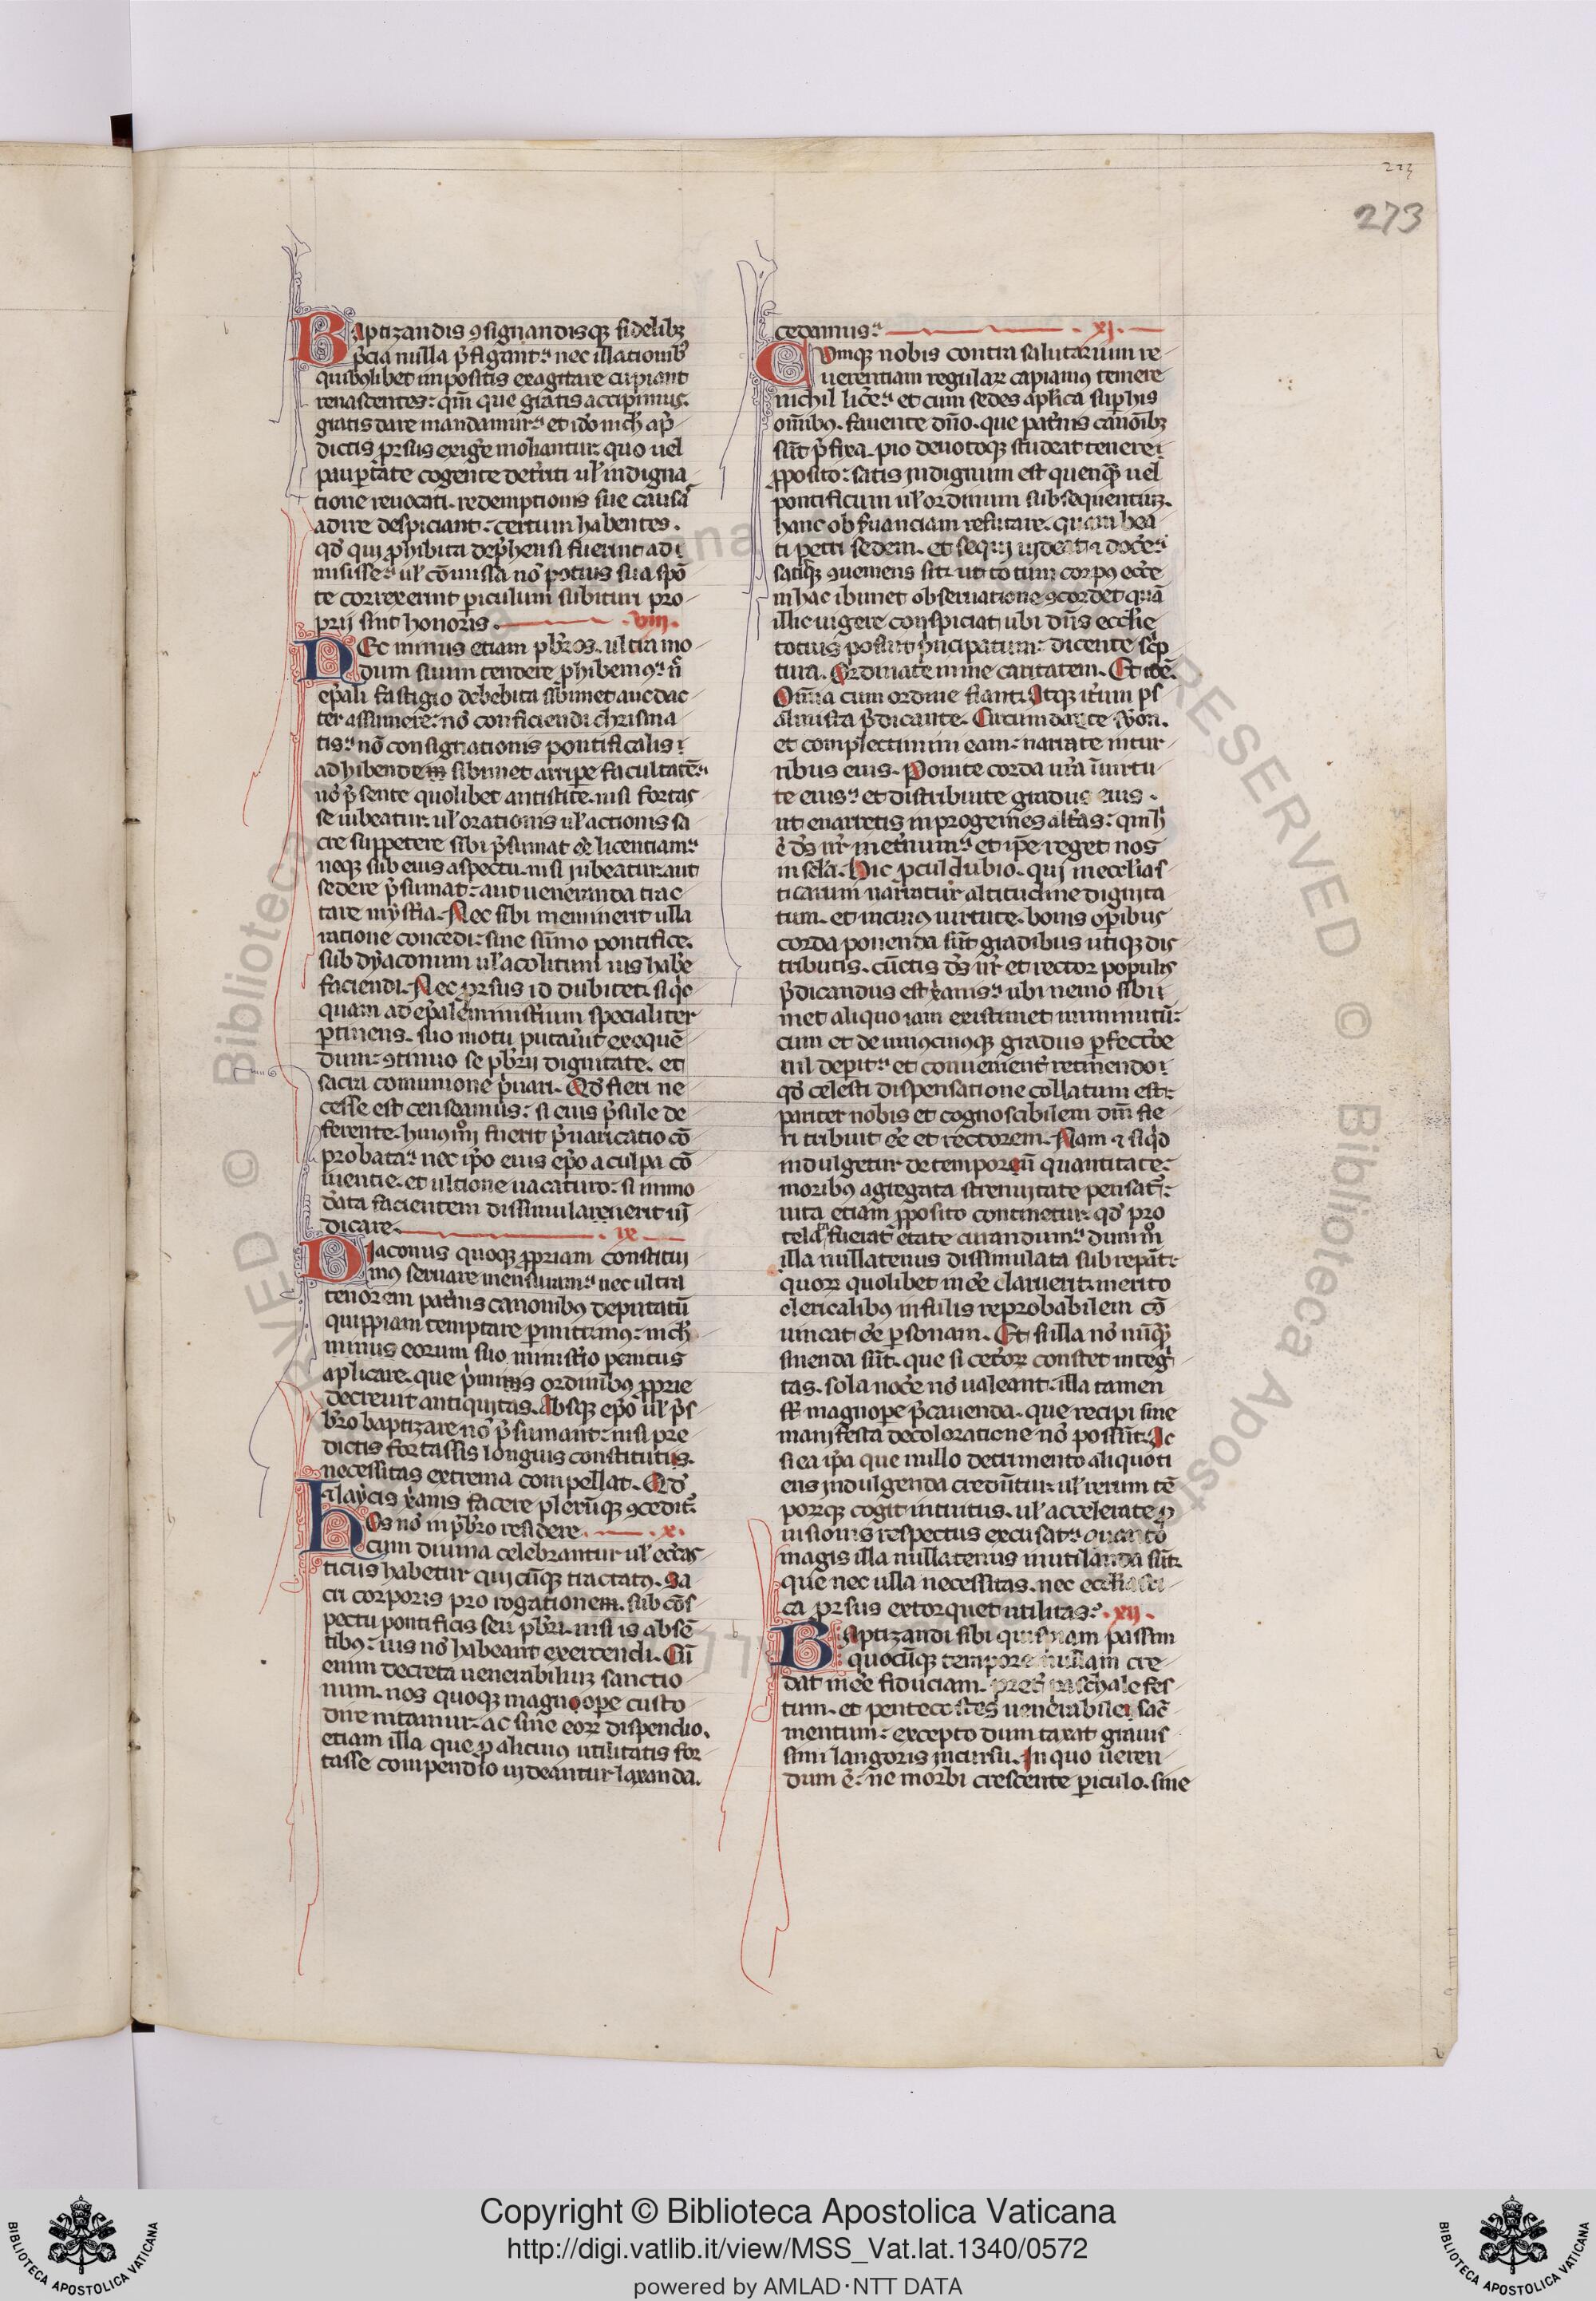 273
273
Baptizandis ꝯsignandisqꝫ fidelibꝫ
p̄cia nulla p̄figant᷑ nec illationibꝰ
quibꝰlibet impositis exagitare cupiant
renascentes: qm̄ que gratis accipimus.
gratis dare mandamur᷑ et ido nich̄ a p̄
dictis ꝓrsus exiḡe moliantur quo uel
paup̄tate cogente det̄riti ul̓ indigna
tione reuocati. redemptionis sue causā
adire despiciant: certum habentes.
qd̓ qui ꝓhibita dep̄hensi fuerint ad i
misisse᷑ ul̓ cōmissa nō potius sua spō
te correxerint ꝑiculum subituri pro
prij sint honoris. .viij.
Nec minus etiam pb̄ros. ultra mo
dum suum tendere ꝓhibemꝰ᷑ n̄
ep̄ali fastigio debebita sibimet audac
ter assumere: nō conficiendi chrisma
tis᷑ nō consignationis pontificalis i
adhibendem sibimet arripe facultatē᷑
nō p̄sente quolibet antistite. nisi fortas
se iubeatur. ul̓ orationis ul̓ actionis sa
cre suppetere sibi p̄sumat eē licentiam᷑
neqꝫ sub eius aspectu. nisi jubeatur: aut
sedere p̄sumat: aut ueneranda trac
tare myst̄ia. Nec sibi meminerit ulla
ratione concedi: sine sūmo pontifice.
subdyaconum ul̓ acolitum ius hab̄e
faciendi. Nec ꝓrsus id dubitet: si qͥc
quam ad ep̄ale minist̄ium specialiter
ꝑtinens. suo motu putau̓it exequē
dum: ꝯtinuo se pb̄rij dignitate. et
sacra comunione p̄uari. Qd̓ fieri ne
cesse est censeamus: si eius p̄sule de
ferente. huiꝰmōi fuerit p̄uaricatio cō
probata᷑ nec ip̄o eius ep̄o a culpa cō
uientie. et ultione uacaturo: si immo
d̄ata facientem dissimularenerit uī
dicare. .ix.
Diaconus quoqꝫ ꝓpriam constitui
mꝰ seruare mensuram᷑ nec ultra
tenorem pat̄nis canonibꝰ deputatū
quippiam temptare ꝑmittimꝰ: nich̄
minus eorum suo minist̄io penitus
aplicare. que p̄imis ordinibꝰ ꝓprie
decreuit antiquitas. Absqꝫ ep̄o ul̓ p̄s
b̄ro baptizare nō p̄sumant: nisi pre
dictis fortassis longius constitutis.
necessitas extrema compellat. Qd̓
laycis x̄anis facere plerūqꝫ ꝯcedit᷑
Hos nō in pb̄ro residere. .x.
cum diuina celebrantur ul̓ ecc̄as
ticus habetur quicūqꝫ tractatꝰ. Sa
cri corporis pro rogationem. sub cōs
pectu pontificis seu pb̄ri. nisi is absē
tibꝰ: ius nō habeant exercendi. Cū
enim decreta uenerabiliuꝫ sanctio
num. nos quoqꝫ magnoope custo
dire nitamur: ac sine eoꝝ dispendio.
etiam illa que ꝓ alicuiꝰ utilitatis for
tasse compendio uideantur laxanda.
cedamus᷑ .xj.
Cumqꝫ nobis contra salutarium re
uerentiam regulaꝝ capiamꝰ temere
nichil lic̄e᷑ et cum sedes apl̓ica sup̄ his
om̄ibꝰ. fauente dn̄o. que pat̄nis canōibꝫ
sūt p̄fixa. pio deuotoqꝫ studeat tenere i
ꝓposito: satis indignum est quenqꝫ̄ uel
pontificum ul̓ ordinum subsequentiuꝫ.
hanc obs̄uanciam refutare. quam bea
ti petri sedem. et sequi uideat ⁊ doc̄e᷑
satisqꝫ ꝯueniens sit: ut totum corpꝰ ecc̄e
in hac ibimet obseruatione ꝯcordet quā
illic uigere conspiciat. ubi dn̄s ecclie
totius posuit p̄ncipatum: dicente sc̄p
tura. Ordinate in me caritatem. Et itē.
Om̄ia cum ordine fiant. Atqꝫ it̄um ps̄
almista p̄dicante. Circumdate syon.
et complectimini eam: narrate in tur
ribus eius. Ponite corda ur̄a in uirtu
te eius᷑ et distribuite gradus eius.
ut enarretis in progenies alt̄as: qm̄ h̓
ē ds̄ nr̄ in et̄num᷑ et ip̄e reget nos
in sc̄la. Hic ꝓculdubio. qui in ecclias
ticarum narratur altitudine dignita
tum. et in cuiꝰ uirtute. bonis oꝑibus
corda ponenda sūt gradibus utiqꝫ dis
tributis. cūctis ds̄ nr̄ et rector populis
p̄dicandus est x̄anis᷑ ubi nemo sibi i
met aliquo iam existimet imminutū:
cum et de uniꝰcuiusqꝫ gradus ꝑfectōe
nil depit᷑ et conuenient̄ retinendo i
qd̓ celesti dispensatione collatum est:
pariter nobis et cognoscibilem dm̄ fie
ri tribuit eē et rectorem. Nam ⁊ si qͥd
indulgetur de temporū quantitate:
moribꝰ agregata strenuitate pensat᷑:
uita etiam ꝓposito continetur. qd̓ pro
tela fuerat etate curandum᷑ dummō
illa nullatenus dissimulata subrepāt:
quoꝝ quolibet ineē claruerit. merito
clericalibꝰ infulis reprobabilem cō
uincat eē ꝑsonam. Et si illa nō nūqꝫ̄
sinenda sūt. que si cet̄oꝝ constet integ̓
tas. sola noc̄e nō ualeant. illa tamen
sūt magnope p̄cauenda. que recipi sine
manifesta decoloratione nō possūt. Ac
si ea ip̄a que nullo detrimento aliquoti
ens indulgenda credūtur: ul̓ rerum tē
poꝝqꝫ cogit intuitus. ul̓ accelerate ꝓ
uisionis respectus excusat᷑ quanto
magis illa nullatenus mutilanda sūt.
que nec ulla necessitas. nec ecclesiasti
ca ꝓrsus extorquet utilitas᷑ .xij.
Baptizandi sibi quisquam passim
quocūqꝫ tempore nullam cre
dat ineē fiduciam. pret̄ paschale fes
tum. et pentecostes uenerabile sac̄
mentum: excepto dum taxat grauis
simi langoris incursu. In quo ueren
dum ē: ne morbi crescente ꝑiculo. sine
Copyright © Biblioteca Apostolica Vaticana
http://digi.vatlib.it/view/MSS_Vat.lat.1340/0572
powered by AMLAD·NTT DATA
BIBLIOTECA APOSTOLICA VATICANA
BIBLIOTECA APOSTOLICA VATICANA